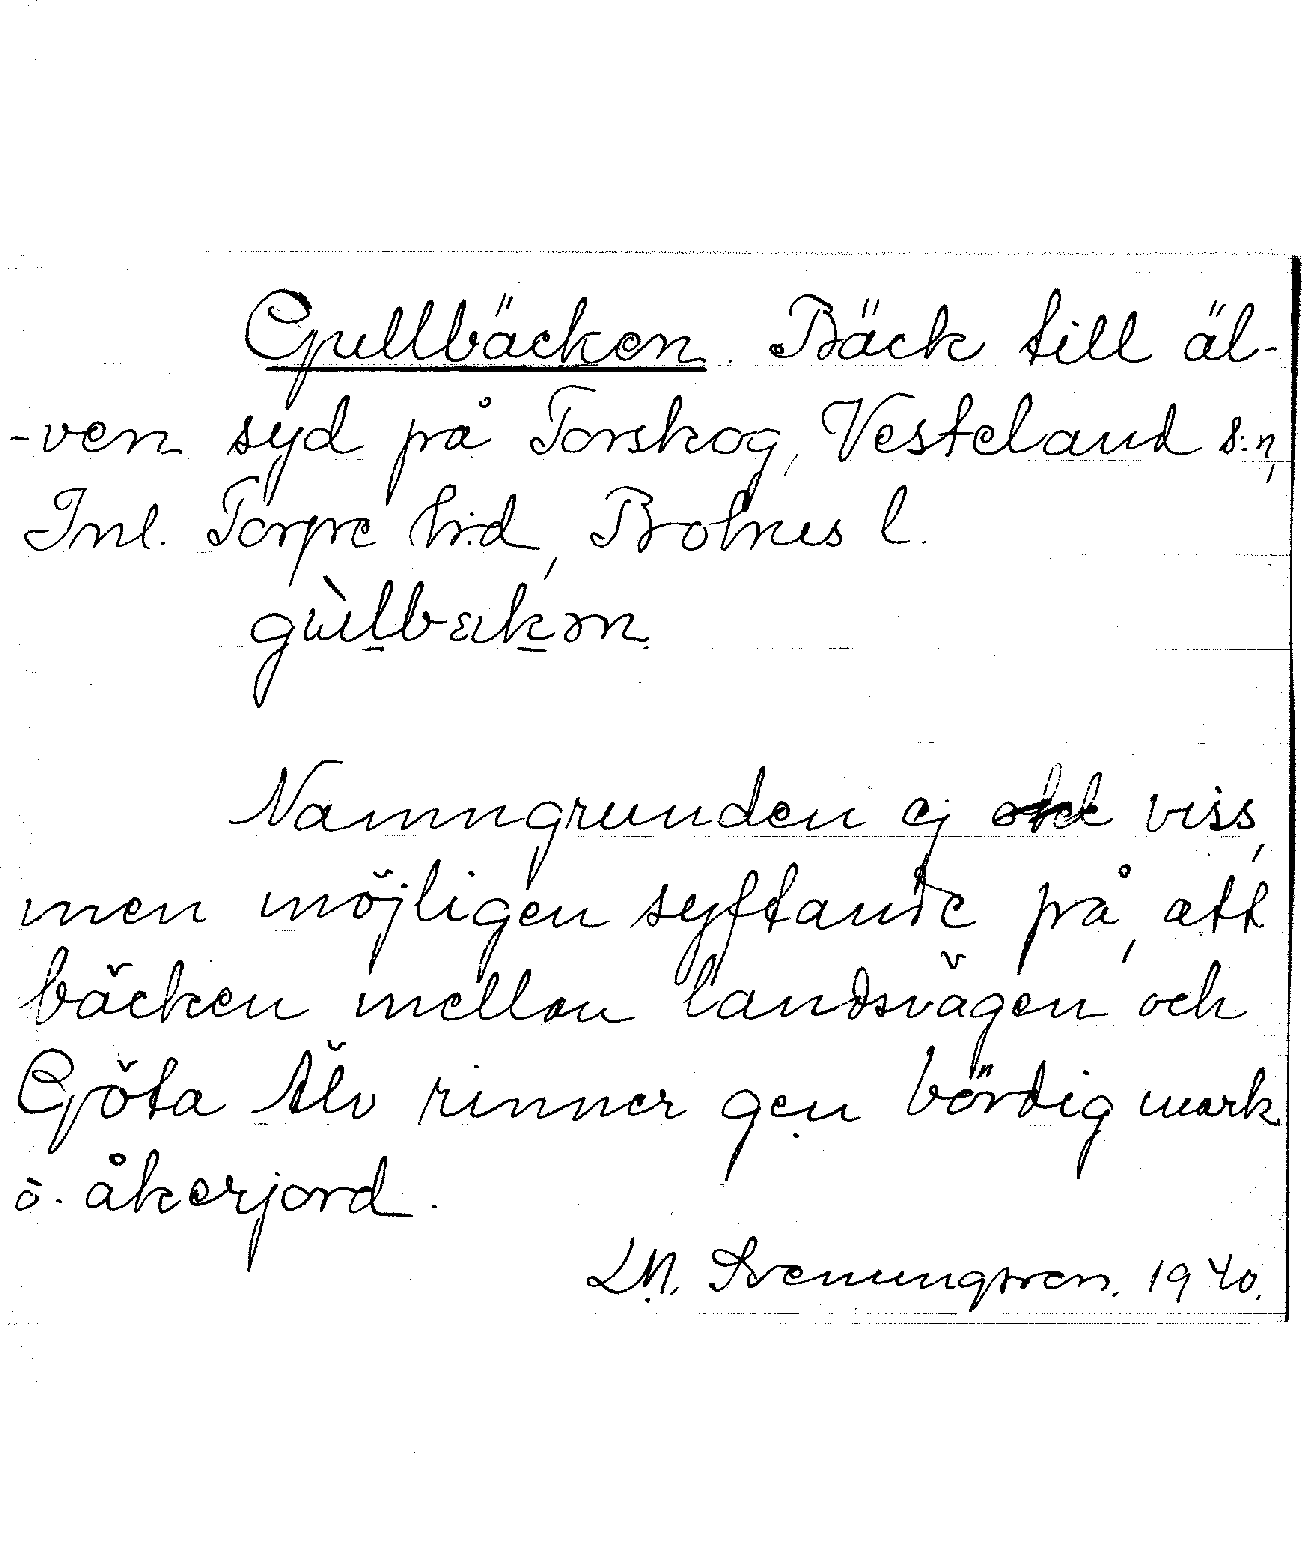 Gullbäcken. Bäck till äl-
-ven syd på Torskog, Vesteland s:n,
Inl. Torpe h:d, Bohus l.
gùlbækən.
Namngrunden ej viss,
men möjligen syftande på, att
bäcken mellan landsvägen och
Göta Älv rinner gen bördig mark
o. åkerjord.
LM. Svenungsson. 1940.